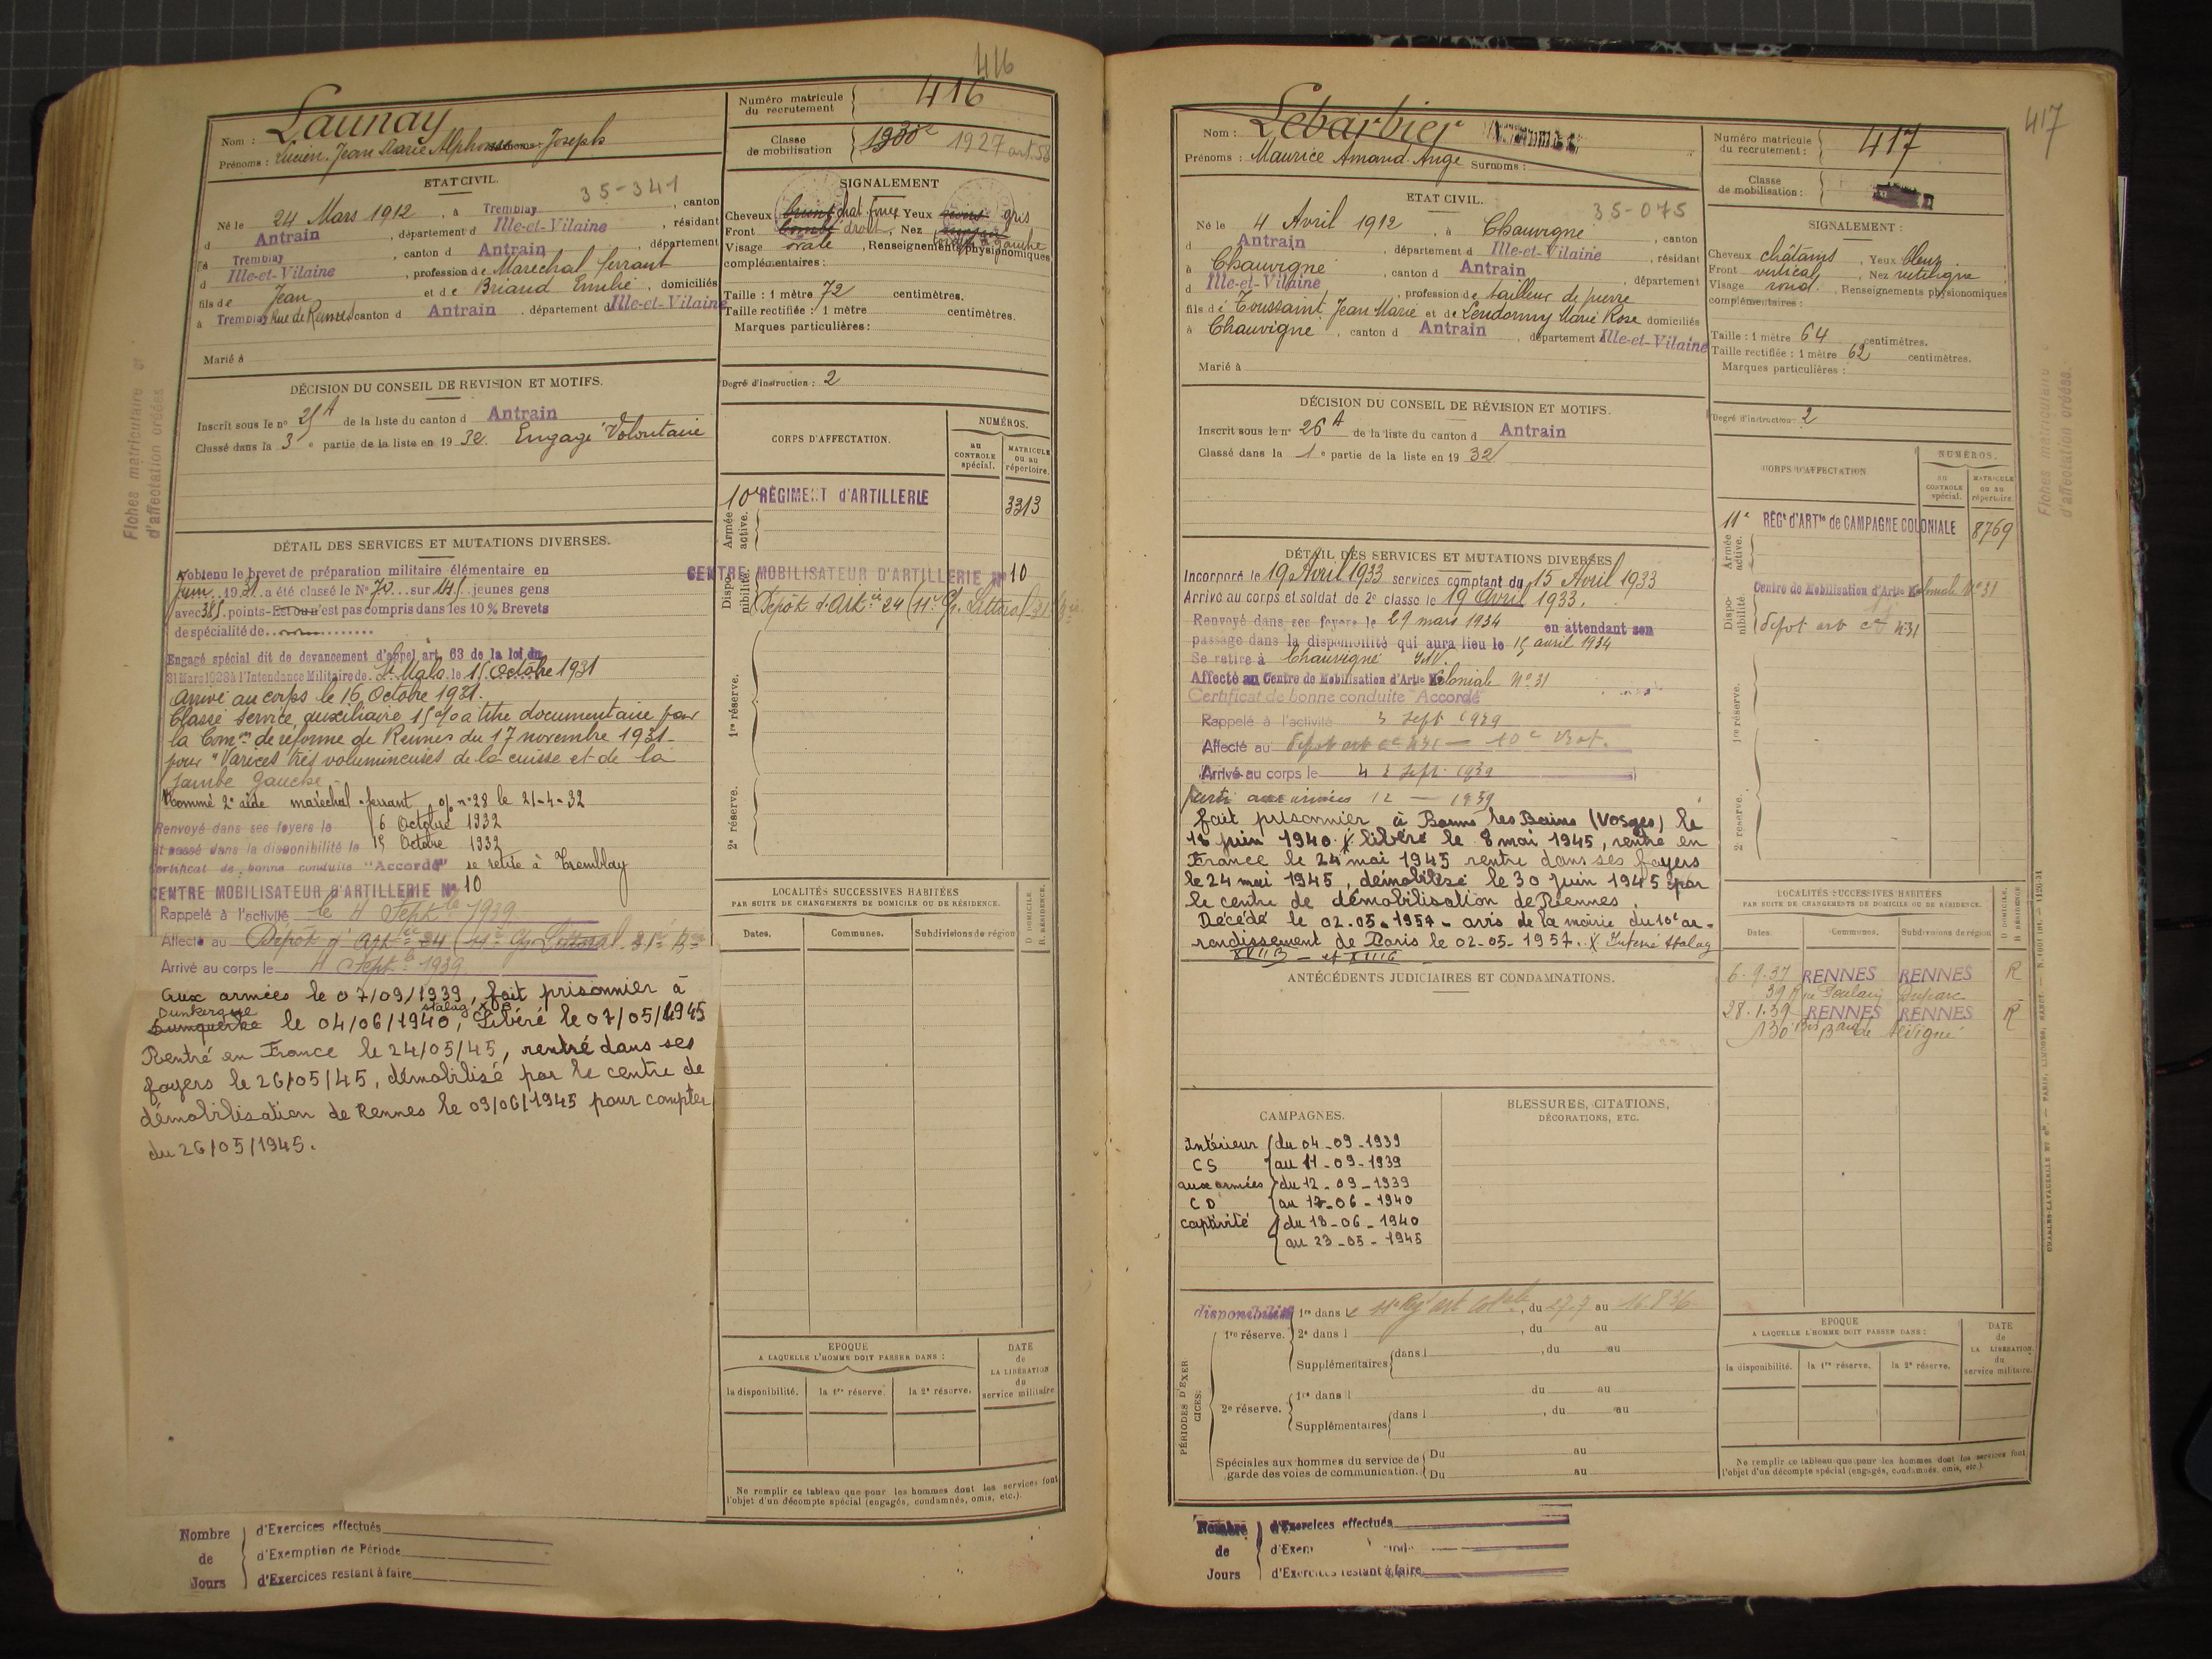 416
Nom : Launay
Prénoms : Lucien Jean Marie Alphonse Joseph
Numéro matricule du recrutement 416
Classe de mobilisation 1930 1927 art 58
ETAT CIVIL.
35-341
Né le 24 Mars 1912, à Tremblay, canton
d Antrain, département d Ille-et-Vilaine, résidant
à Tremblay, canton d Antrain, département
d Ille-et-Vilaine, profession de Maréchal ferrant
fils de Jean et de Briand Emilie, domiciliés
à Tremblay Rue de Rennes canton d Antrain, département d Ille-et-Vilaine
Marié à
SIGNALEMENT
Cheveux chat foncé Yeux gris
Front droit, Nez gauche
Visage ovale, Renseignements physionomiques
complémentaires :
Taille : 1 mètre 72 centimètres.
Taille rectifiée : 1 mètre centimètres.
Marques particulières :
Degré d'instruction : 2
DÉCISION DU CONSEIL DE REVISION ET MOTIFS.
Inscrit sous le n° 25 A de la liste du canton d Antrain
Classé dans la 3e partie de la liste en 1932. Engagé Volontaire
CORPS D'AFFECTATION.
NUMÉROS.
au CONTROLE spécial.
MATRICULE ou au répertoire.
Armée active.
10e RÉGIMENT d'ARTILLERIE 3313
Disponibilité.
CENTRE MOBILISATEUR D'ARTILLERIE N° 10
Dépôt d'Art ie 24 (11e Gr. Littoral 31e Bie
1re réserve.
2e réserve.
DÉTAIL DES SERVICES ET MUTATIONS DIVERSES.
A obtenu le brevet de préparation militaire élémentaire en
Juin 1931 a été classé le N° 70 sur 145 jeunes gens
avec 385 points - Est ou n'est pas compris dans les 10 % Brevets
de spécialité de
Engagé spécial dit de devancement d'appel art. 63 de la loi du
31 Mars 1928 à l'Intendance Militaire de St Malo le 15 Octobre 1931
Arrivé au corps le 16 Octobre 1931.
Classé Service auxiliaire 15% à titre documentaire par
la Comon de réforme de Rennes du 17 novembre 1931
pour "Varices très volumineuses de la cuisse et de la
jambe gauche
Nommé 2e aide maréchal-ferrant o/ n° 28 le 21-4-32
Renvoyé dans ses foyers le 16 Octobre 1932
et passé dans la disponibilité le 15 Octobre 1932
Certificat de bonne conduite "Accordé" se retire à Tremblay
CENTRE MOBILISATEUR D'ARTILLERIE N° 10
Rappelé à l'activité le 4 Septbre 1939
Affecté au Dépôt d'Art ie 24 (11e Gr Littoral. 31e Bie
Arrivé au corps le 4 Septb 1939
Aux armées le 07/09/1939, fait prisonnier à
Dunkerque stalag XB
Dumquerke le 04/06/1940, Libéré le 07/05/1945
Rentré en France le 24/05/45, rentré dans ses
foyers le 26/05/45, démobilisé par le centre de
démobilisation de Rennes le 09/06/1945 pour compter
du 26/05/1945.
LOCALITÉS SUCCESSIVES HABITÉES
PAR SUITE DE CHANGEMENTS DE DOMICILE OU DE RÉSIDENCE.
Dates. Communes. Subdivisions de région D DOMICILE R. RÉSIDENCE.
EPOQUE
A LAQUELLE L'HOMME DOIT PASSER DANS :
la disponibilité. la 1re réserve. la 2e réserve.
DATE de LA LIBÉRATION du service militaire
Ne remplir ce tableau que pour les hommes dont les services font
l'objet d'un décompte spécial (engagés, condamnés, omis, etc.).
Nombre de Jours
d'Exercices effectués
d'Exemption de Période
d'Exercices restant à faire
Fiches matriculaire et
d'affectation créées
417
Nom : Lebarbier
Prénoms : Maurice Amand Ange Surnoms :
Numéro matricule du recrutement : 417
Classe de mobilisation :
ETAT CIVIL.
35-075
Né le 4 Avril 1912, à Chauvigné, canton
d Antrain, département d Ille-et-Vilaine, résidant
à Chauvigné, canton d Antrain, département
d Ille-et-Vilaine, profession de tailleur de pierre
fils de Toussaint Jean Marie et de Lendormy Marie Rose domiciliés
à Chauvigné, canton d Antrain, département Ille-et-Vilaine
Marié à
SIGNALEMENT :
Cheveux châtains, Yeux bleus
Front vertical, Nez rectiligne
Visage rond. Renseignements physionomiques
complémentaires :
Taille : 1 mètre 64 centimètres.
Taille rectifiée : 1 mètre 62 centimètres.
Marques particulières :
Degré d'instruction : 2
DÉCISION DU CONSEIL DE RÉVISION ET MOTIFS.
Inscrit sous le n° 26 A de la liste du canton d Antrain
Classé dans la 1e partie de la liste en 1932
CORPS D'AFFECTATION
NUMÉROS.
AU CONTROLE spécial.
MATRICULE OU AU répertoire.
Armée active.
11e RÉGt d'ARTie de CAMPAGNE COLONIALE 8769
Disponibilité
Centre de Mobilisation d'Artie Koloniale N° 31
dépôt art ce N 31
1re réserve.
2e réserve.
DÉTAIL DES SERVICES ET MUTATIONS DIVERSES
Incorporé le 19 Avril 1933 services comptant du 15 Avril 1933
Arrivé au corps et soldat de 2e classe le 19 Avril 1933.
Renvoyé dans ses foyers le 29 mars 1934 en attendant son
passage dans la disponibilité qui aura lieu le 15 avril 1934
Se retire à Chauvigné I&V.
Affecté au Centre de Mobilisation d'Artie Koloniale N° 31
Certificat de bonne conduite "Accordé"
Rappelé à l'activité 3 sept 1939
Affecté au Dépôt art ce N31 — 10e Brat.
Arrivé au corps le 4 Sept. 1939
Parti aux armées 12 — 1939
fait prisonnier à Bains les Bains (Vosges) le
18 juin 1940. X libéré le 8 mai 1945, rentré en
France le 24 mai 1945 rentre dans ses foyers
le 24 mai 1945, démobilisé le 30 Juin 1945 par
le centre de démobilisation de Rennes.
Décédé le 02.05.1957 - avis de la mairie du 10e ar-
rondissement de Paris le 02-05-1957. X Interné Stalag
XVII B et XVIII C
ANTÉCÉDENTS JUDICIAIRES ET CONDAMNATIONS.
LOCALITÉS SUCCESSIVES HABITÉES
PAR SUITE DE CHANGEMENTS DE DOMICILE OU DE RÉSIDENCE.
Dates. Communes. Subdivisions de région D DOMICILE. R RÉSIDENCE
6-9-37 RENNES RENNES R
39 Rue Poulain Duparc
28-1-39 RENNES RENNES R
130 Bd de Sévigné
CAMPAGNES.
BLESSURES, CITATIONS,
DÉCORATIONS, ETC.
Intérieur du 04-09-1939
CS au 11-09-1939
aux armées du 12-09-1939
CD au 17-06-1940
captivité du 18-06-1940
au 23-05-1945
PÉRIODES D'EXERCICES:
disponibilité 1re dans le 11e Rgt art Colale, du 27.7 au 16.8.36
1re réserve. 2e dans l, du au
Supplémentaires dans l, du au
2e réserve. 1re dans l du au
Supplémentaires dans l, du au
Spéciales aux hommes du service de Du au
garde des voies de communication. Du au
EPOQUE
A LAQUELLE L'HOMME DOIT PASSER DANS :
la disponibilité. la 1re réserve. la 2e réserve.
DATE de LA LIBÉRATION du service militaire.
Ne remplir ce tableau que pour les hommes dont les services font
l'objet d'un décompte spécial (engagés, condamnés, omis, etc.).
Nombre de Jours
d'Exercices effectués
d'Exem
d'Exercices restant à faire
Fiches matriculaire
d'affectation créées